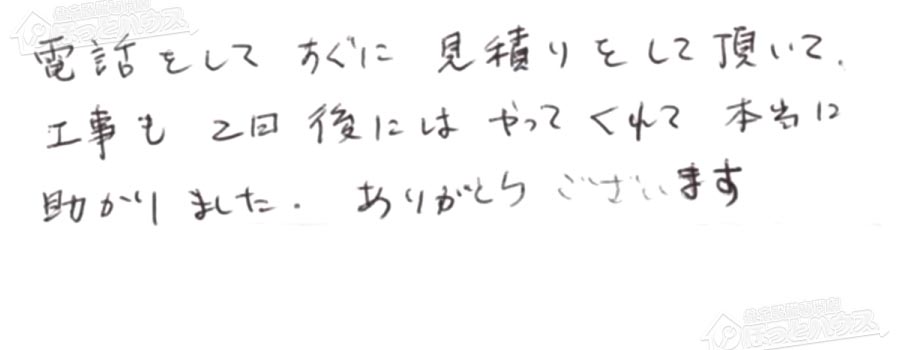 電話をして すぐに 見積りをして頂いて、
工事も 2日後にはやってくれて 本当に
助かりました. ありがとうございます
ほっとハウス
ほっとハウス